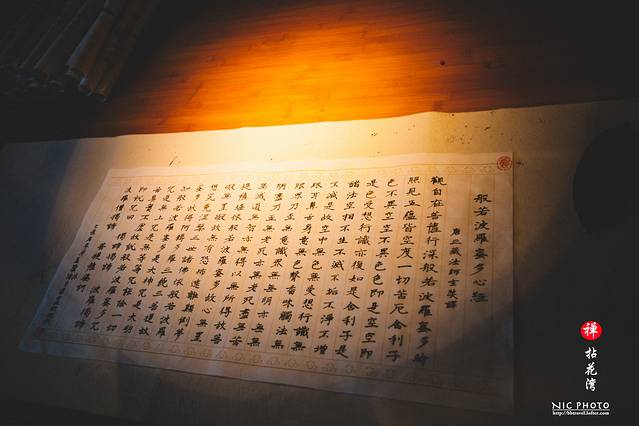 般若波羅蜜多心經
唐三藏法師玄奘譯
觀自在菩薩行深般若波羅蜜多時
照見五蘊皆空度一切苦厄舍利子
色不異空空不異色色即是空空即
是色受想行識亦復如是舍利子是
諸法空相不生不滅不垢不淨不增
不減是故空中無色無受想行識無
眼耳鼻舌身意無色聲香味觸法無
眼界乃至無意識界無無明亦無無
明盡乃至無老死亦無老死盡無苦
集滅道無智亦無得以無所得故菩
提薩埵依般若波羅蜜多故心無罣
礙無罣礙故無有恐怖遠離顛倒夢
想究竟涅槃三世諸佛依般若波羅
蜜多故得阿耨多羅三藐三菩提故
知般若波羅蜜多是大神咒是大明
咒是無上咒是無等等咒能除一切
苦真實不虛故說般若波羅蜜多咒
即說咒曰揭諦揭諦波羅揭諦
波羅僧揭諦菩提薩婆訶
禪
拈花灣
NIC PHOTO
http://bbtravel.lofter.com